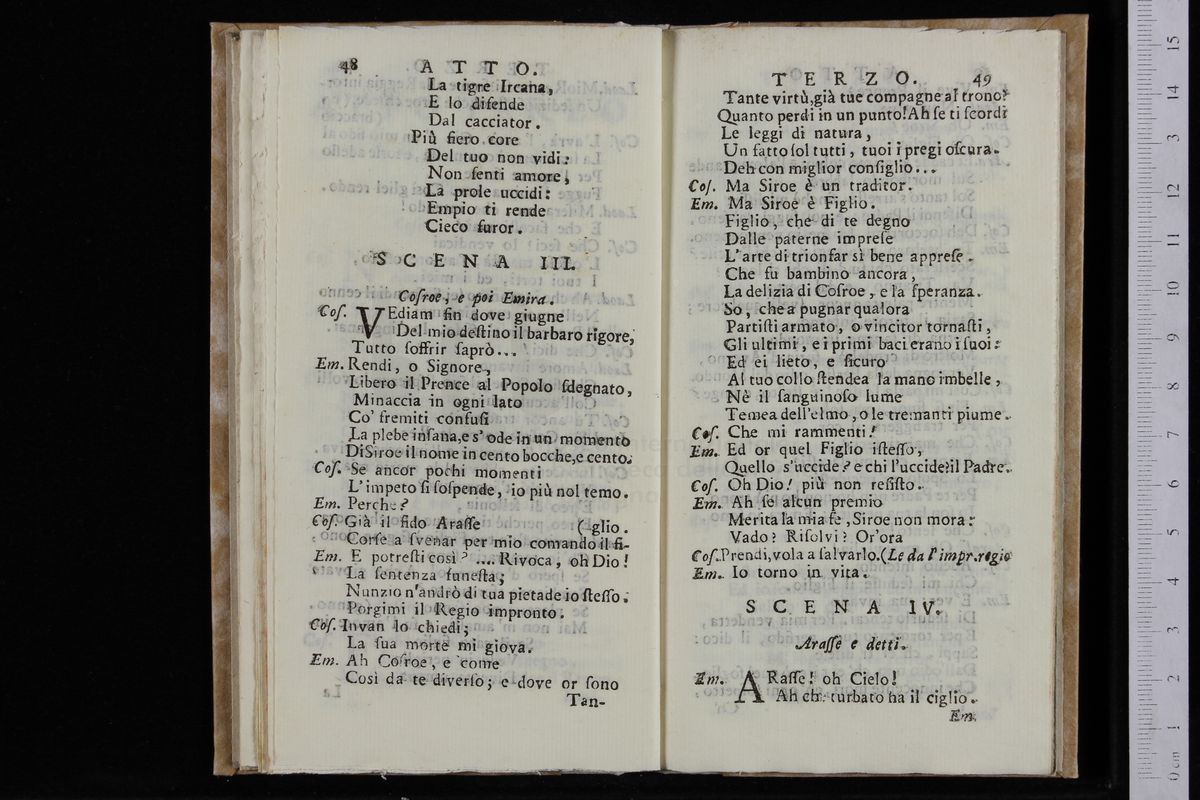 48 ATTO.
La tigre Ircana,
E lo difende
Dal cacciator.
Più fiero core
Del tuo non vidi:
Non ſenti amore,
La prole uccidi:
Empio ti rende
Cieco furor.
SCENA III.
Coſroe, e poi Emira.
Coſ. VEdiam fin dove giugne
Del mio deſtino il barbaro rigore;
Tutto ſoffrir ſaprò...
Em. Rendi, o Signore,
Libero il Prence al Popolo ſdegnato,
Minaccia in ogni lato
Co' fremiti confuſi
La plebe inſana, e s' ode in un momento
Di Siroe il nome in cento bocche, e cento.
Coſ. Se ancor pochi momenti
L' impeto ſi ſoſpende, io più nol temo.
Em. Perche?
Coſ. Già il fido Araſſe (glio.
Corſe a ſvenar per mio comando il fi-
Em. E potreſti così? .... Rivoca, oh Dio!
La ſentenza funeſta;
Nunzio n'andrò di tua pietade io ſteſſo.
Porgimi il Regio impronto.
Coſ. Invan lo chiedi;
La ſua morte mi giova.
Em. Ah Coſroe, e come
Così da te diverſo; e dove or ſono
Tan-
TERZO. 49
Tante virtù, già tue compagne al trono?
Quanto perdi in un punto! Ah ſe ti ſcordi
Le leggi di natura,
Un fatto ſol tutti, tuoi i pregi oſcura.
Deh con miglior conſiglio...
Coſ. Ma Siroe è un traditor.
Em. Ma Siroe è Figlio.
Figlio, che di te degno
Dalle paterne impreſe
L' arte di trionfar sì bene appreſe.
Che fu bambino ancora,
La delizia di Coſroe, e la ſperanza.
So, che a pugnar qualora
Partiſti armato, o vincitor tornaſti,
Gli ultimi, e i primi baci erano i ſuoi:
Ed ei lieto, e ſicuro
Al tuo collo ſtendea la mano imbelle,
Nè il ſanguinoſo lume
Temea dell'elmo, o le tremanti piume.
Coſ. Che mi rammenti!
Em. Ed or quel Figlio iſteſſo,
Quello s'uccide? e chi l'uccide? il Padre.
Coſ. Oh Dio! più non reſiſto.
Em. Ah ſe alcun premio
Merita la mia fe, Siroe non mora:
Vado? Riſolvi? Or'ora
Coſ. Prendi, vola a ſalvarlo. (Le da l' impr. regio
Em. Io torno in vita.
SCENA IV.
Araſſe e detti.
Em. ARaſſe! oh Cielo!
Ah che turbato ha il ciglio.
Em.